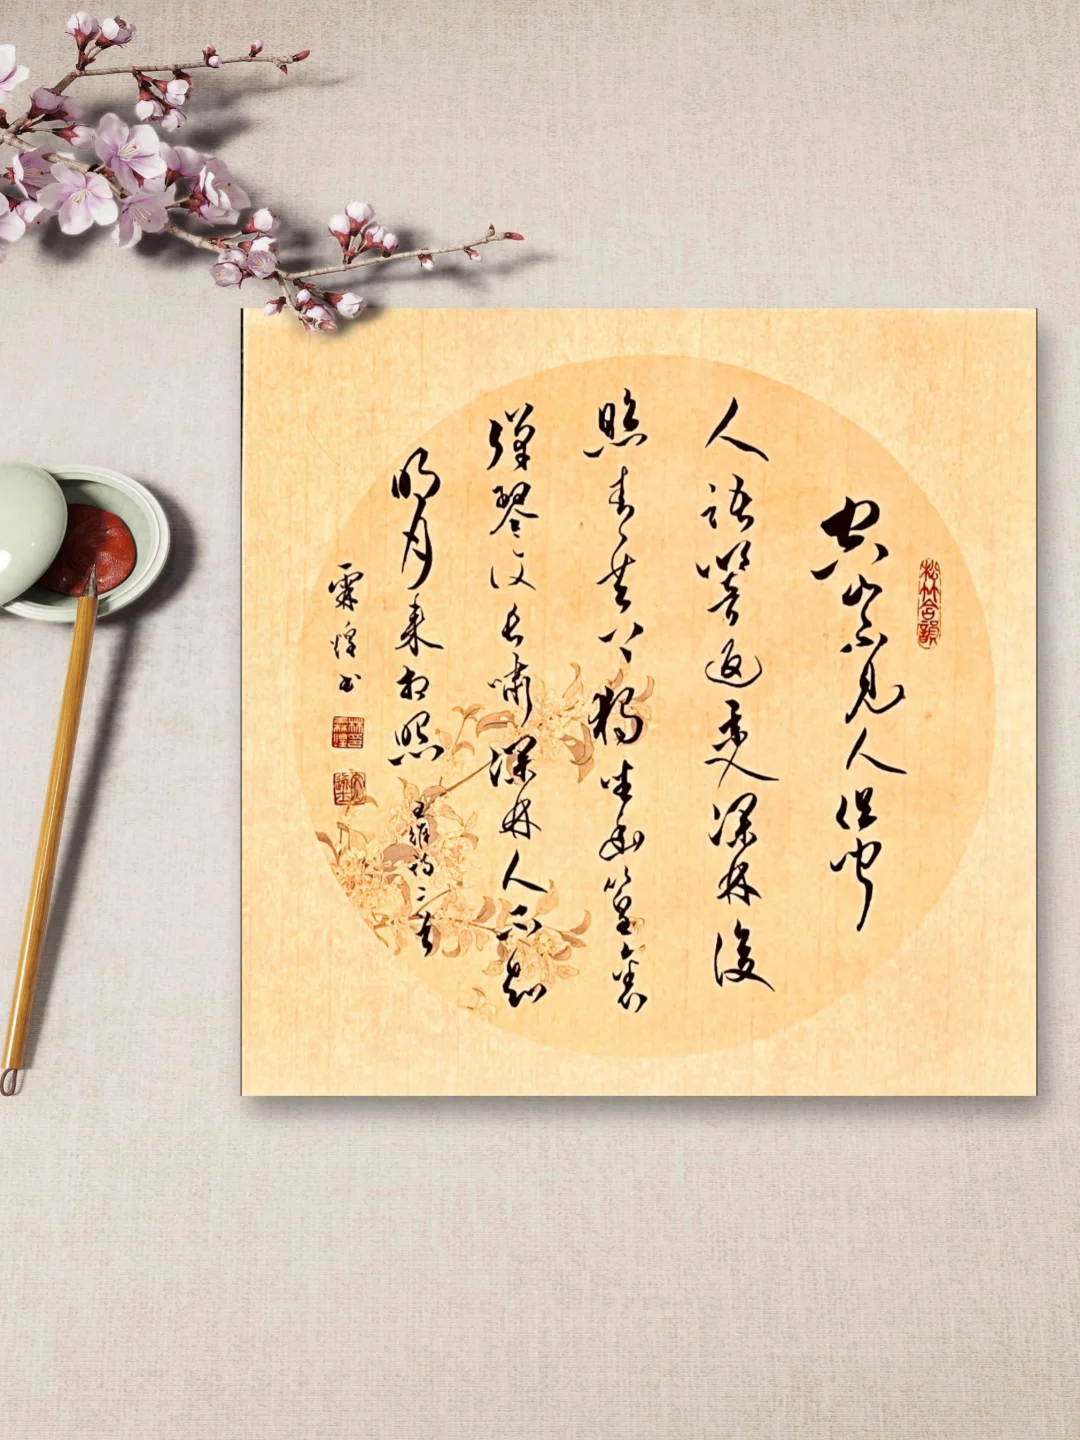 空山不見人但聞
人語響返景入深林復
照青苔上獨坐幽篁裏
彈琴復長嘯深林人不知
明月来相照 王維詩二首
霖煌书
林印霖煌